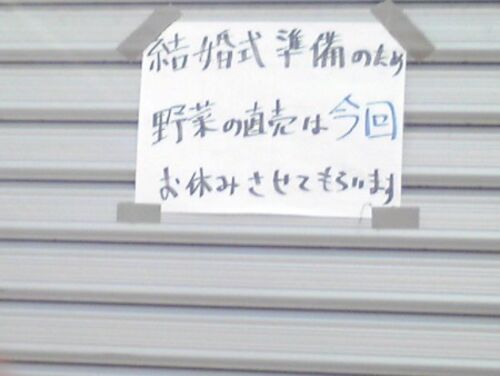 結婚式準備のため
野菜の直売は今回
お休みさせてもらいます